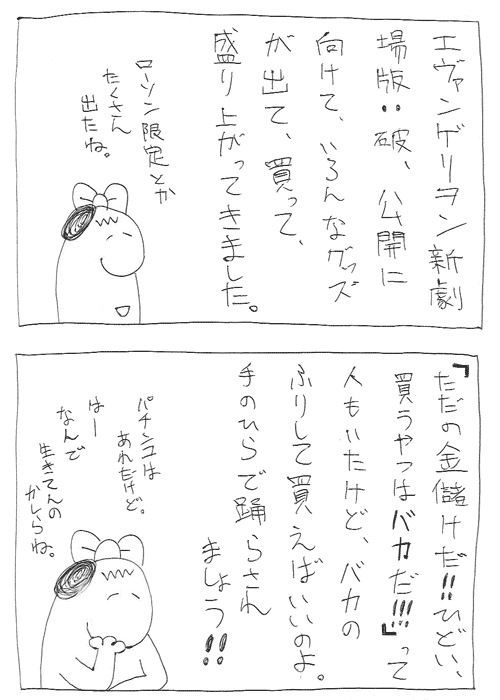 エヴァンゲリヲン新劇
場版:破、公開に
向けて、いろんなグッズ
が出て、買って、
盛り上がってきました。
ローソン限定とか
たくさん
出たね。
『ただの金儲けだ!!ひどい、
買うやつはバカだ!!!』って
人もいたけど、バカの
ふりして買えばいいのよ。
手のひらで踊らされ
ましょう!!
パチンコは
あれだけど。
はー
なんで
生きてんの
かしらね。